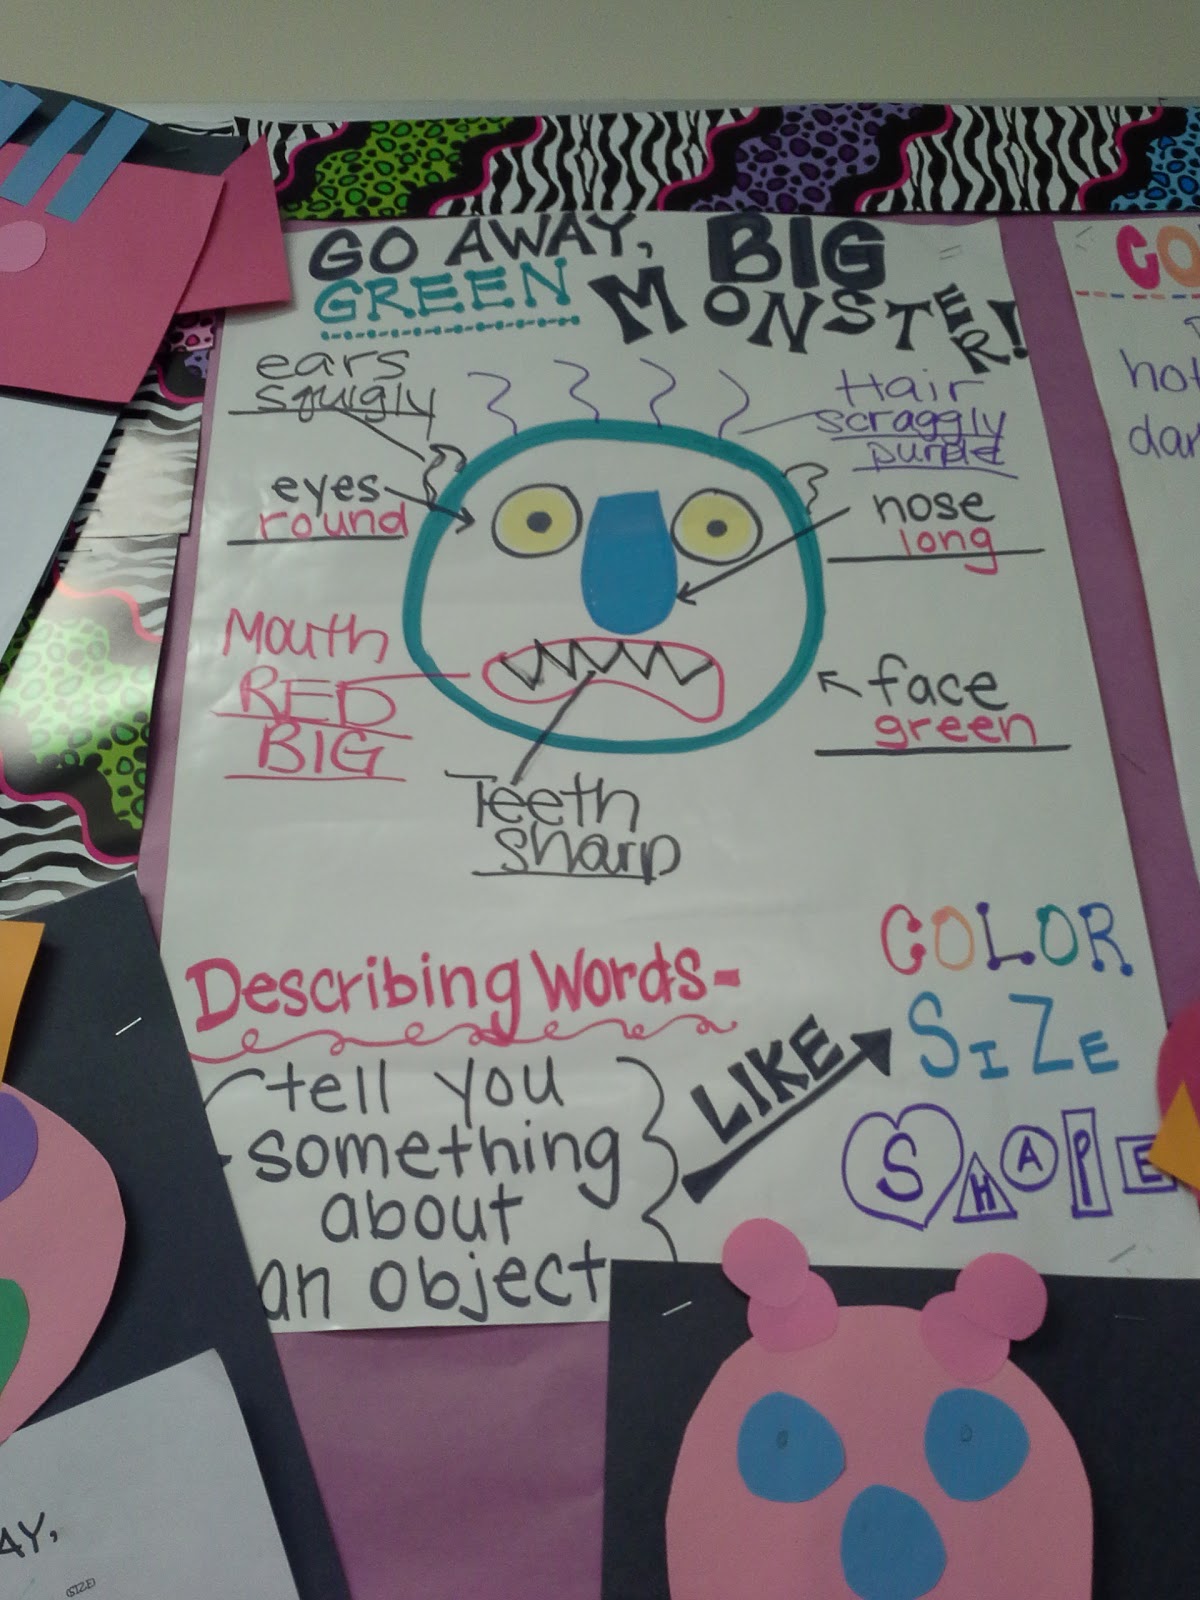 GO AWAY, BIG
GREEN MONSTER!
ears
squigly
Hair
scraggly
purple
eyes
round
nose
long
Mouth
RED
BIG
face
green
Teeth
sharp
Describing Words-
tell you
something
about
an object
LIKE
COLOR
SIZE
SHAPE
CO
hot
dar
AY,
SIZE